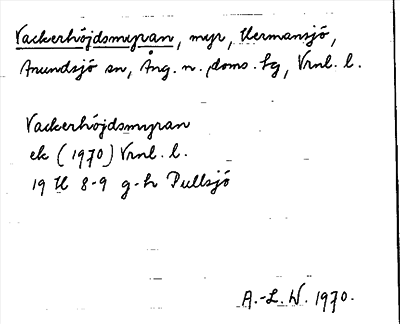 Vackerhöjdsmyran, myr, Hermansjö,
Anundsjö sn, Ång. n. doms. fg, Vrnl. l.
Vackerhöjdsmyran
ek (1970) Vrnl. l.
19 H 8-9 g-h Pullsjö
A.-L. W. 1970.